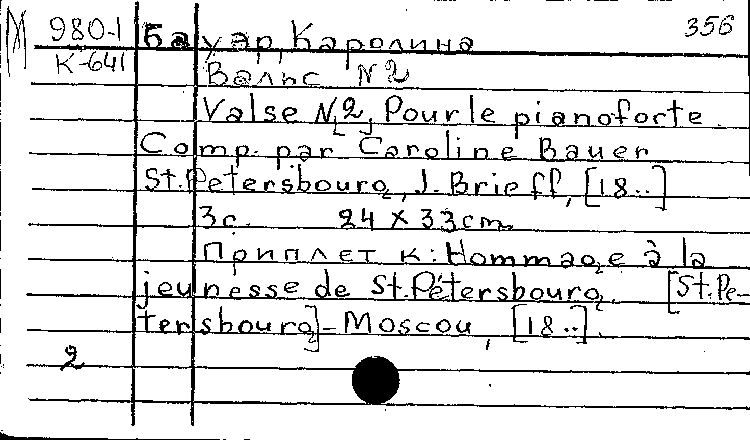 М 980-1 Бауэр, Каролина 356
К-641 Вальс N2
Valse N[2], Pour le pianoforte.
Comp. par Caroline Bauer
St.Petersbourg, J. Brieff, [18..]
3с. 24 x 33cm.
Приплет к: Hommage à la
jeunesse de St.Pétersbourg. [St.Pe-
tersbourg]-Moscou, [18..].
2